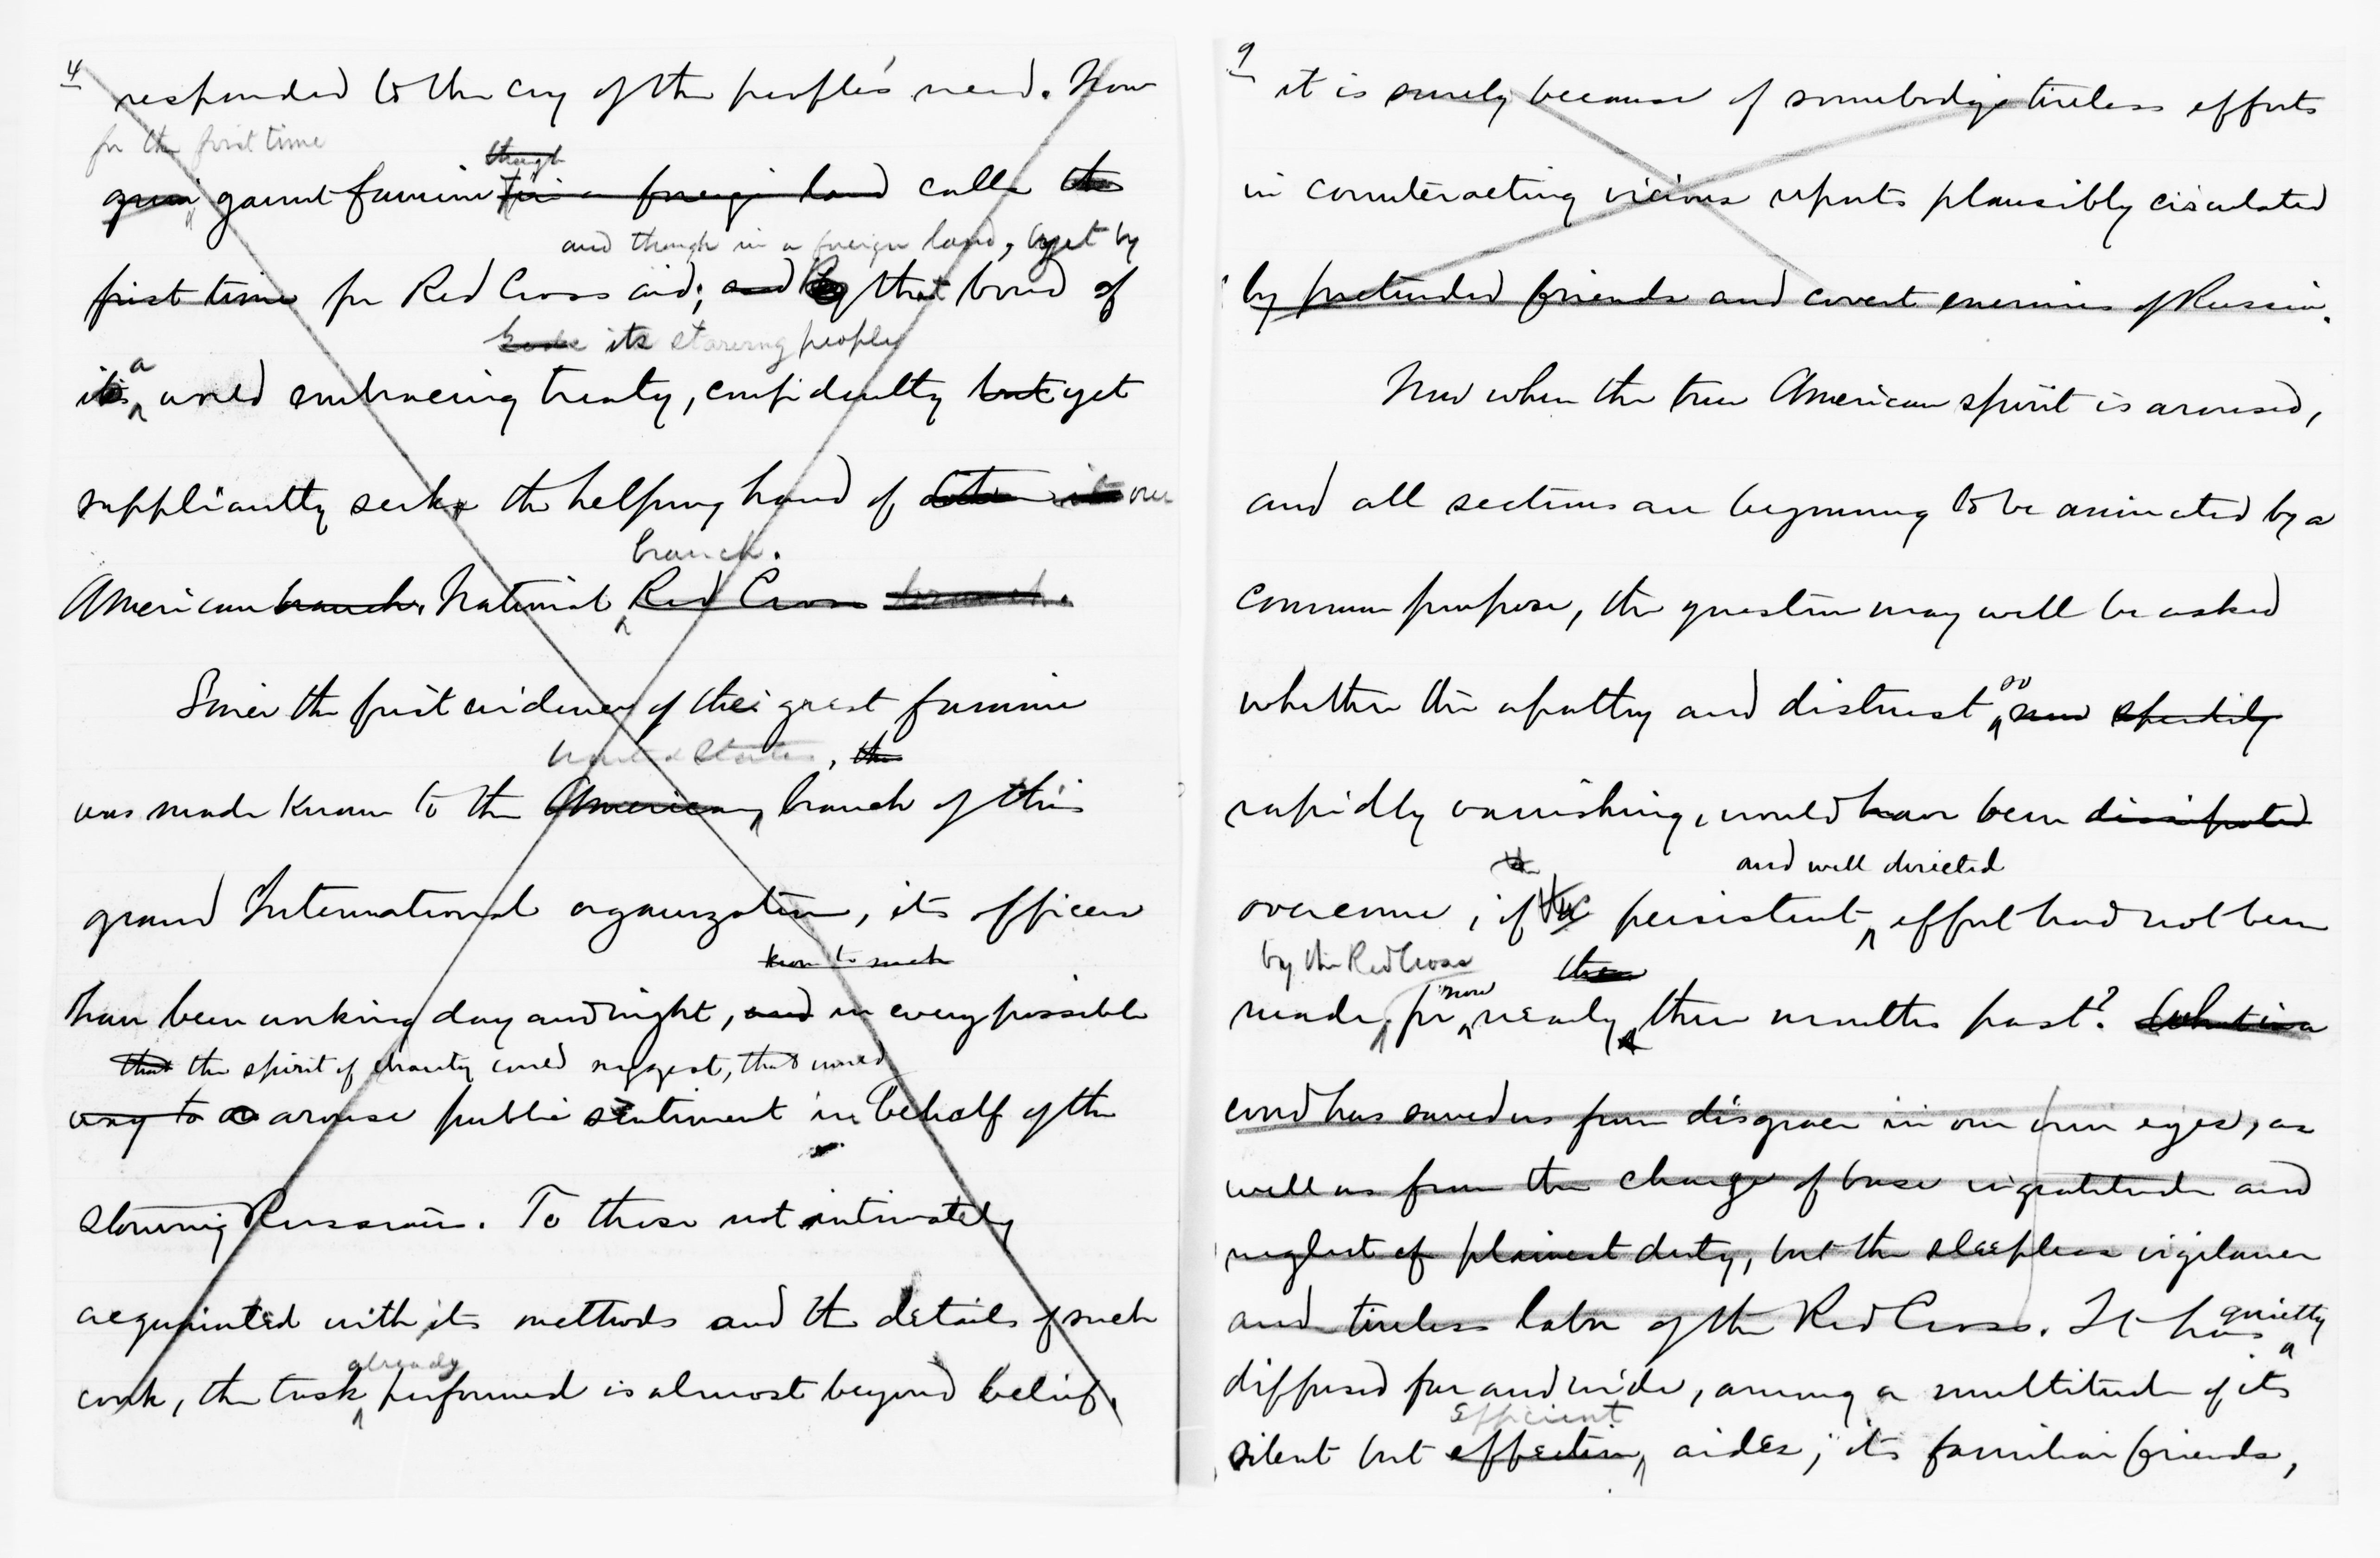 4
responded to the cry of the people's need. Now
for the first time
grim gaunt famine
though
in a foreign land calls the
and though in a foreign land, yet by
first time for Red Cross aid; and by that bond of
its starving people
its a world embracing treaty, confidently but yet
suppliantly seeks the helping hand of our
branch.
American branch. National Red Cross branch.
Since the first evidence of the great famine
United States, the
was made known to the American branch of this
grand International organization, its officers
known to such
have been working day and night, and in every possible
that the spirit of charity could suggest, that would
way to arouse public sentiment in behalf of the
starving Russians. To those not intimately
acquainted with its methods and the details of such
already
work, the task performed is almost beyond belief.
9
it is surely because of somebody's tireless efforts
in counteracting vicious reports plausibly circulated
by pretended friends and covert enemies of Russia.
Now when the true American spirit is aroused,
and all sections are beginning to be animated by a
common purpose, the question may well be asked
so
whether the apathy and distrust now speedily
rapidly vanishing, would have been dissipated
the
and well directed
overcome, if the persistent effort had not been
by the Red Cross
now
made, for nearly three months past? What in a
word has saved us from disgrace in our own eyes, as
well as from the charge of base ingratitude and
neglect of plainest duty, but the sleepless vigilance
and tireless labor of the Red Cross. It has quietly
diffused far and wide, among a multitude of its
efficient
silent but effective aides, its familiar friends,